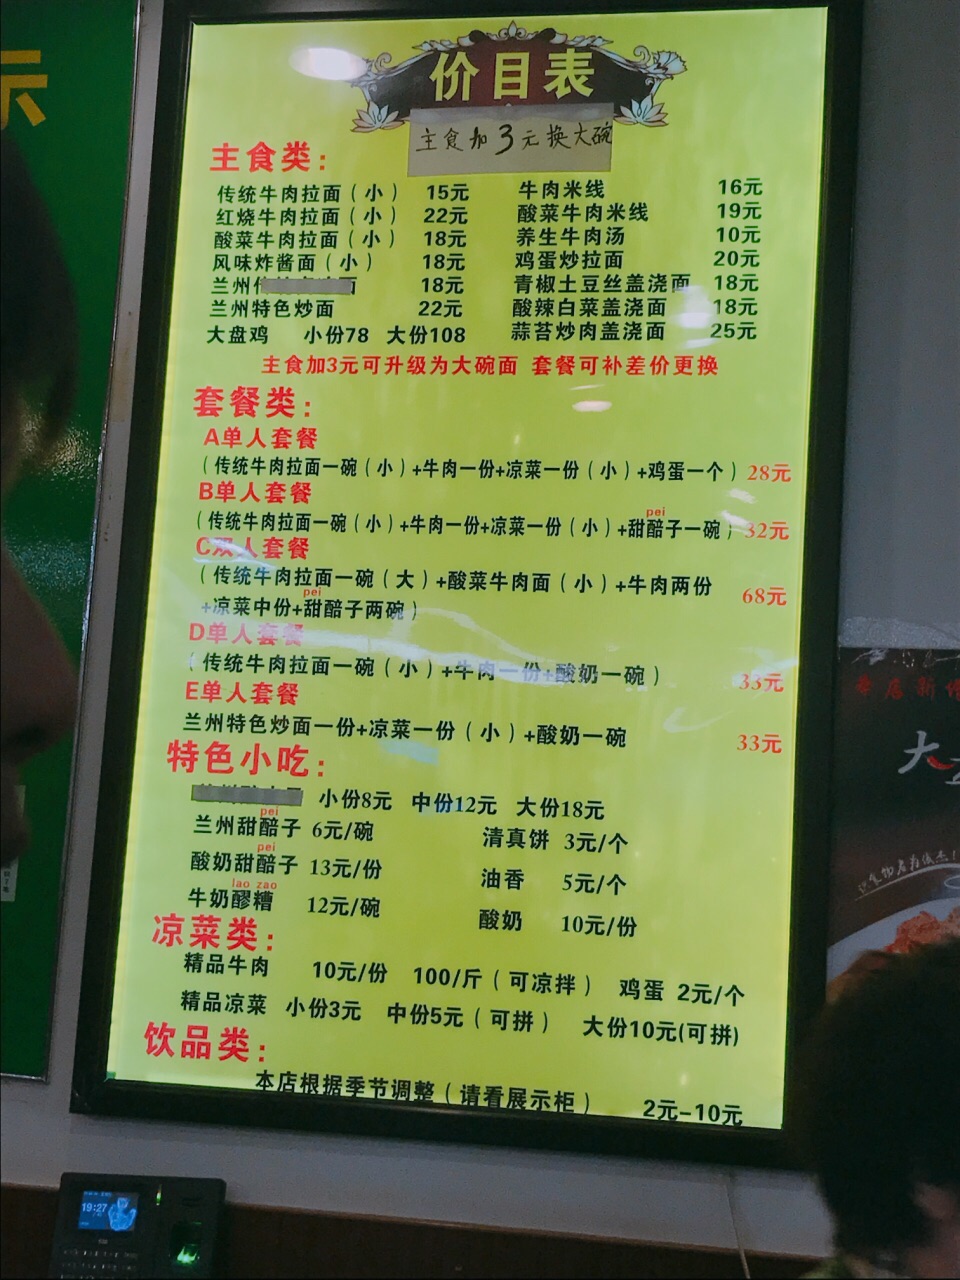 示
价目表
主食加3元换大碗
主食类:
传统牛肉拉面（小） 15元
红烧牛肉拉面（小） 22元
酸菜牛肉拉面（小） 18元
风味炸酱面（小） 18元
兰州 18元
兰州特色炒面 22元
大盘鸡 小份78 大份108
牛肉米线 16元
酸菜牛肉米线 19元
养生牛肉汤 10元
鸡蛋炒拉面 20元
青椒土豆丝盖浇面 18元
酸辣白菜盖浇面 18元
蒜苔炒肉盖浇面 25元
主食加3元可升级为大碗面 套餐可补差价更换
套餐类:
A单人套餐
（传统牛肉拉面一碗（小）+牛肉一份+凉菜一份（小）+鸡蛋一个）28元
B单人套餐
pei
（传统牛肉拉面一碗（小）+牛肉一份+凉菜一份（小）+甜醅子一碗）32元
C双人套餐
（传统牛肉拉面一碗（大）+酸菜牛肉面（小）+牛肉两份
pei
+凉菜中份+甜醅子两碗） 68元
D单人套餐
（传统牛肉拉面一碗（小）+牛肉一份+酸奶一碗） 33元
E单人套餐
兰州特色炒面一份+凉菜一份（小）+酸奶一碗 33元
特色小吃:
小份8元 中份12元 大份18元
pei
兰州甜醅子 6元/碗 清真饼 3元/个
pei
酸奶甜醅子 13元/份 油香 5元/个
lao zao
牛奶醪糟 12元/碗 酸奶 10元/份
凉菜类:
精品牛肉 10元/份 100/斤（可凉拌） 鸡蛋 2元/个
精品凉菜 小份3元 中份5元（可拼） 大份10元(可拼)
饮品类:
本店根据季节调整（请看展示柜） 2元-10元
19:27